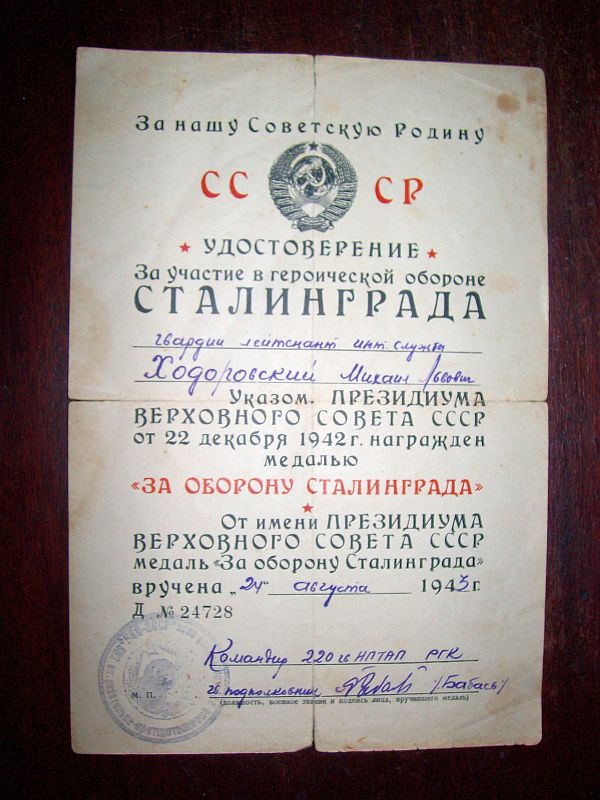 За нашу Советскую Родину
СССР
УДОСТОВЕРЕНИЕ
За участие в героической обороне
СТАЛИНГРАДА
гвардии лейтенант инт. службы
Ходоровский Михаил Львович
Указом ПРЕЗИДИУМА
ВЕРХОВНОГО СОВЕТА СССР
от 22 декабря 1942 г. награжден
медалью
«ЗА ОБОРОНУ СТАЛИНГРАДА»
От имени ПРЕЗИДИУМА
ВЕРХОВНОГО СОВЕТА СССР
медаль «За оборону Сталинграда»
вручена „24“ августа 1943 г.
Д № 24728
Командир 220 гв ИПТАП РГК
М. П.
гв. подполковник /Бабась/
(должность, военное звание и подпись лица, вручившего медаль)